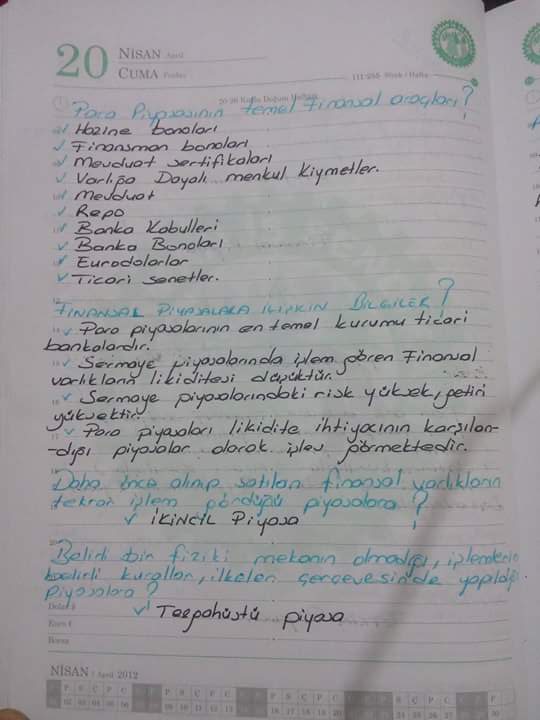 20 NİSAN April
CUMA Friday
111-255 Week / Hafta
20-26 Kutlu Doğum Haftası
Para Piyasasının temel Finansal araçları?
✓ Hazine bonoları
✓ Finansman bonoları
✓ Mevduat sertifikaları
✓ Varlığa Dayalı menkul Kıymetler.
✓ Mevduat
✓ Repo
✓ Banka Kabulleri
✓ Banka Bonoları
✓ Eurodolarlar
✓ Ticari senetler.
FİNANSAL PİYASALARA İLİŞKİN BİLGİLER?
✓ Para piyasalarının en temel kurumu ticari
bankalardır.
✓ Sermaye piyasalarında işlem gören Finansal
varlıkların likiditesi düşüktür.
✓ Sermaye piyasalarındaki risk yüksek, getiri
yüksektir.
✓ Para piyasaları likidite ihtiyacının karşılan-
-dığı piyasalar olarak işlev görmektedir.
Daha önce alınıp satılan finansal varlıkların
tekrar işlem gördüğü piyasalara?
✓ İKİNCİL Piyasa
Belirli bir fiziki mekanın olmadığı, işlemlerin
belirli kurallar, ilkeler çerçevesinde yapıldığı
piyasalara?
✓ Tezgahüstü piyasa
Dolar $
Euro €
Borsa
NİSAN / April 2012
P S Ç P C P S Ç P C
02 03 04 05 06 09 10 11 12 13 16 17 18 19 20 23 24 25 26 27 30